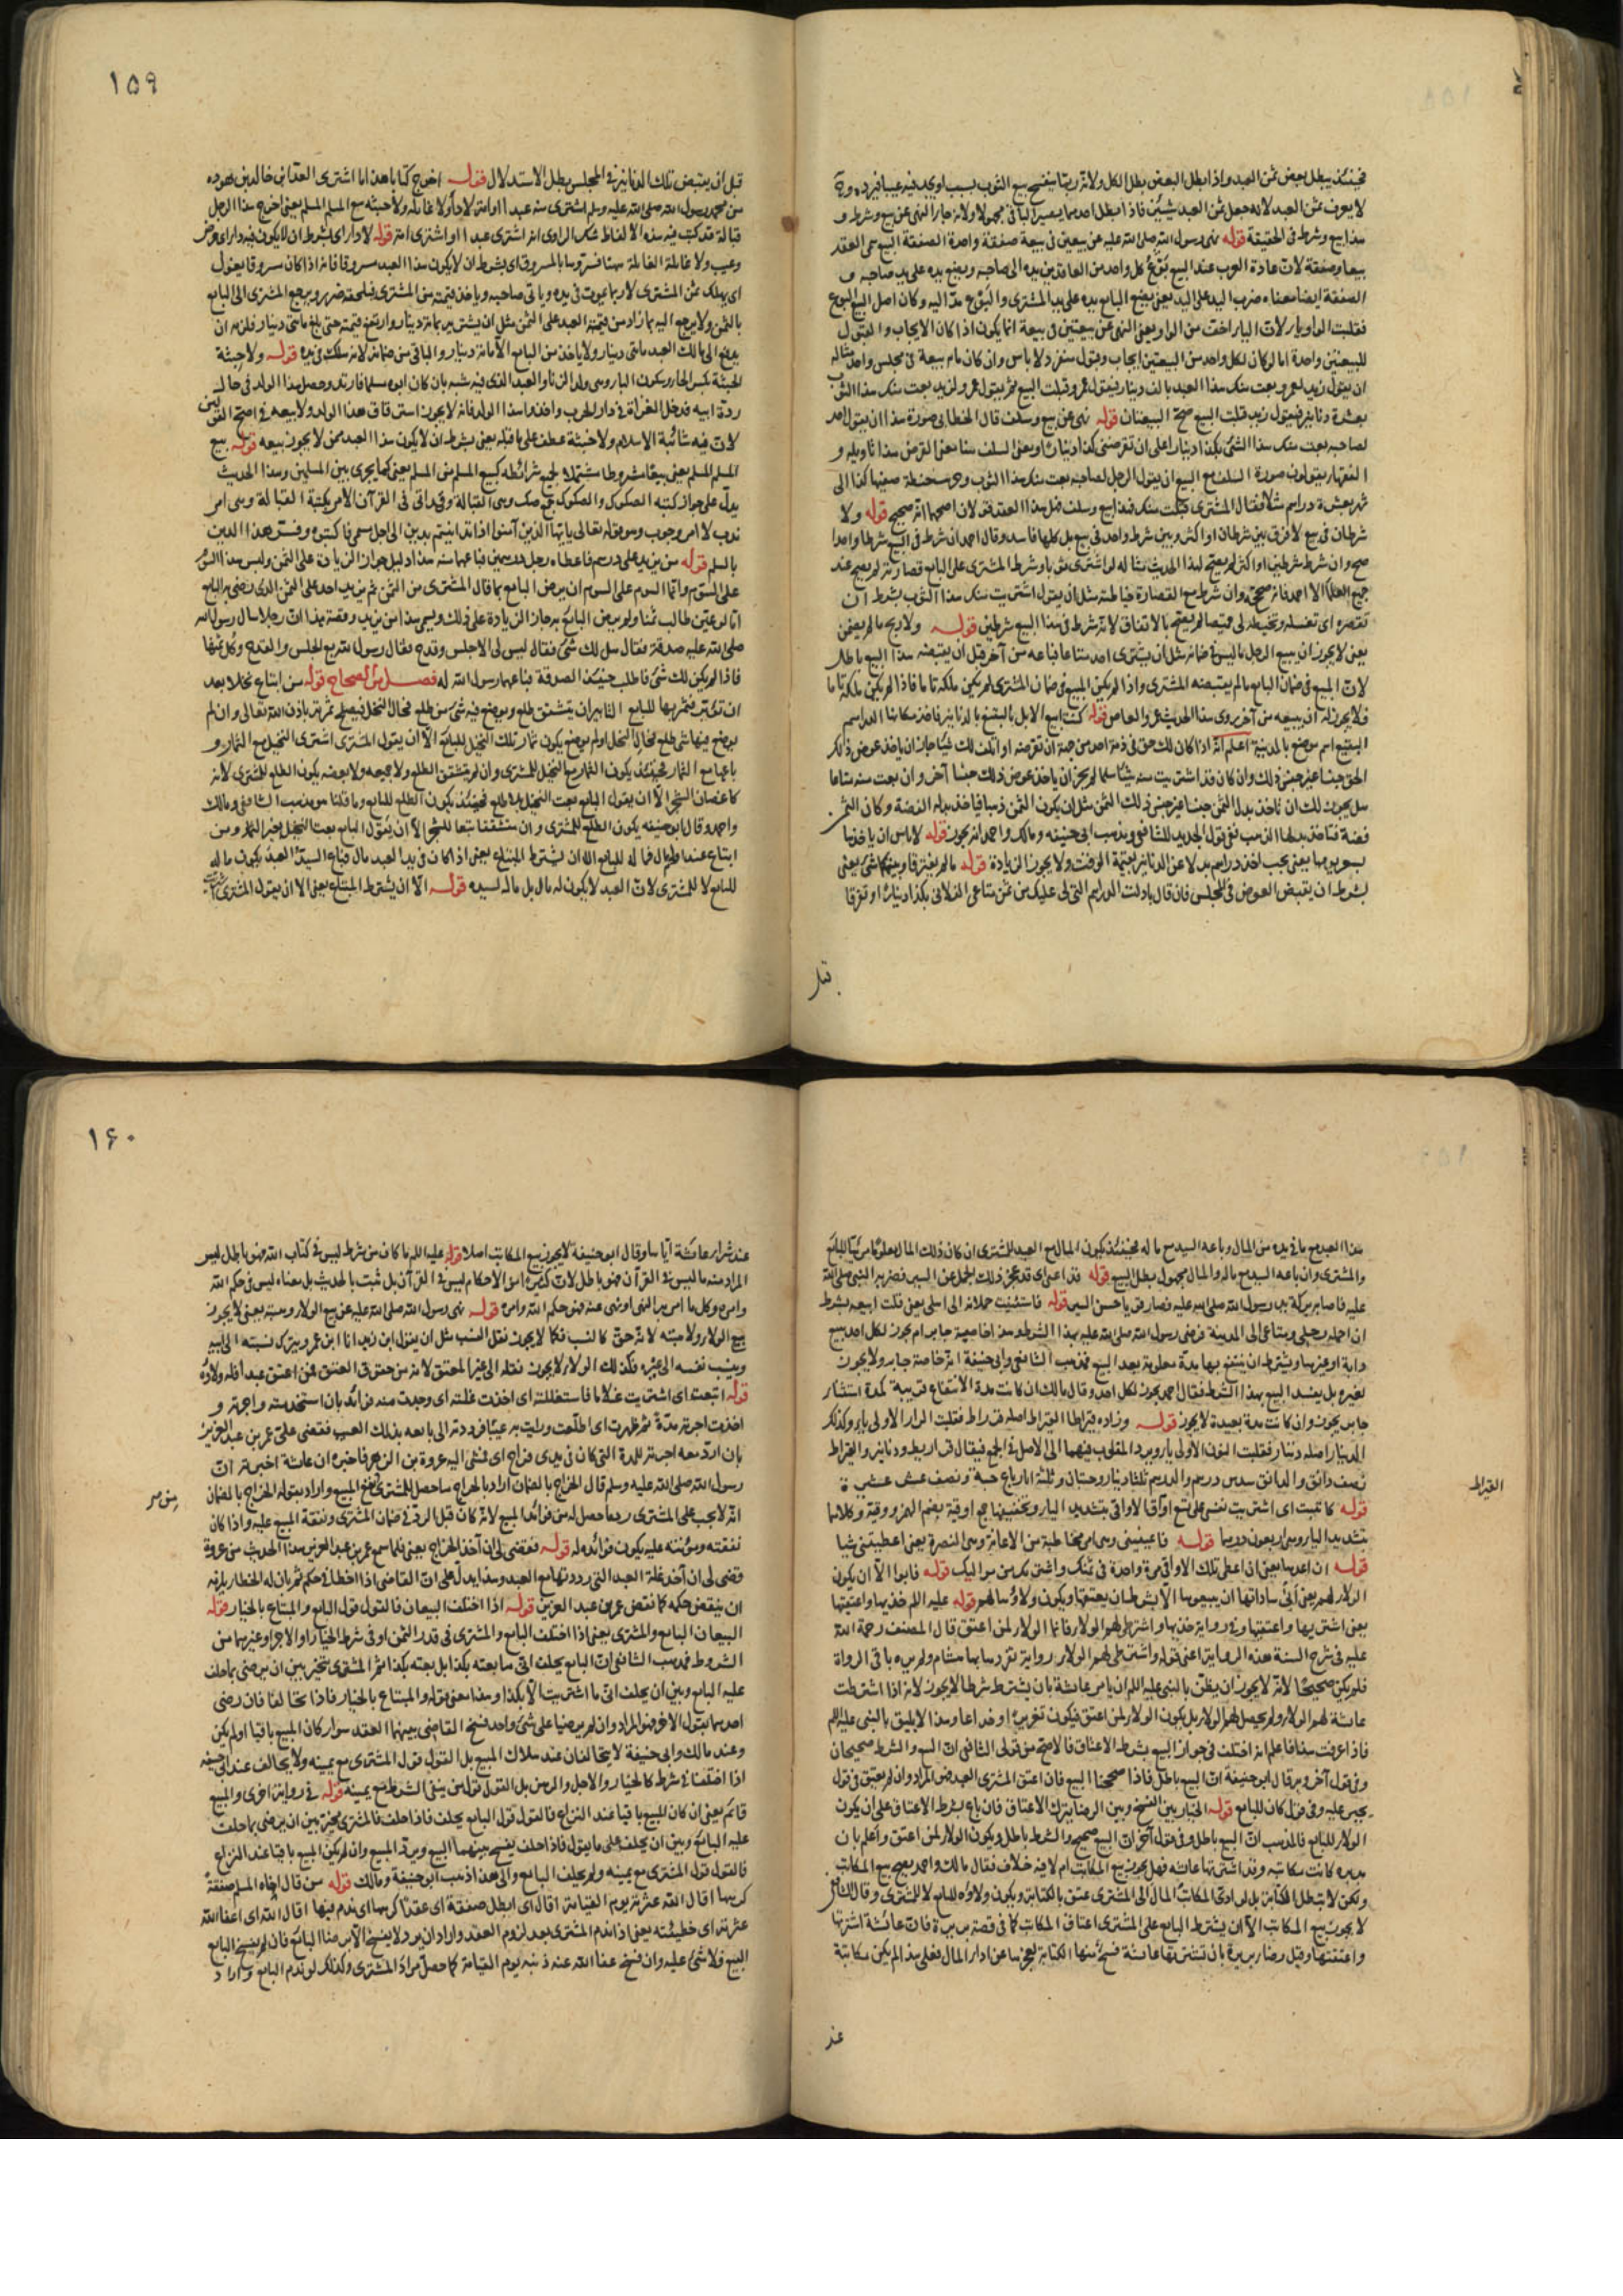 فحينئذ يبطل بعض ثمن العبد واذا بطل البعض بطل الكل ولانه ربما ينفسخ بيع الثوب بسبب او يجد فيه عيبا فيرده
لا يعرف ثمن العبد لانه جعل ثمن العبد شيئين فاذا بطل احدهما يصير الباقي مجهولا ولانه جاء النهى عن بيع وشرط و
هذا بيع وشرط فى الحقيقة قوله نهى رسول الله صلى الله عليه عن بيعتين فى بيعة صفقة واحدة الصفقة البيع سمى العقد
بيعا وصفقة لان عادة العرب عند البيع كل واحد من العاقدين يده الى صاحبه ويضع يده على يد صاحبه و
الصفقة ايضا معناه ضرب اليد على اليد يعنى يضع البايع يده على يد المشترى والبوع مد اليد وكان اصل البيع البوع
فقلبت الواو ياء لان الياء اخف من الواو يعنى النهى عن بيعتين فى بيعة انما يكون اذا كان الايجاب والقبول
للبيعتين واحدة اما لو كان لكل واحد من البيعتين ايجاب وقبول منفرد لا باس وان كان بيعه فى مجلس واحد مثاله
ان يقول زيد لعمرو بعت منك هذا العبد بالف دينار فيقول عمرو قبلت البيع ثم يقول عمرو لزيد بعت منك هذا الثوب
بعشرة دنانير فيقول زيد قبلت البيع صح البيعتان قوله نهى عن بيع وسلف قال الخطابى صورة هذا ان يقول احد
لصاحبه بعت منك هذا الشئ بكذا دينارا على ان تقرضنى كذا دينارا ومعنى السلف هنا معنى القرض هذا تاويله و
الفقهاء يقولون صورة السلف مع البيع ان يقول الرجل لصاحبه بعت منك هذا الثوب وحنطة صفتها كذا الى
شهر بعشرة دراهم مثلا فقال المشترى قبلت منك فهذا بيع وسلف فهل هذا العقد قولان اصحهما انه صحيح قوله ولا
شرطان فى بيع لا فرق بين شرطان او اكثر وبين شرط واحد فى بيع بل كلها فاسد وقال احمد ان شرط فى البيع شرطا واحدا
صح وان شرط شرطين او اكثر لم يصح لهذا الحديث مثاله لو اشترى ثوبا وشرط المشترى على البايع قصارته لم يصح عند
جميع العلماء الا احمد فانه صحيح وان شرط مع القصارة خياطته مثل ان يقول اشتريت منك هذا الثوب بشرط ان
تقصره اى تغسله وتخيطه لى قميصا لم يصح بالاتفاق لانه شرط فى هذا البيع شرطين قوله ولا ربح ما لم يضمن
يعنى لا يجوز ان يبيع الرجل ما ليس فى ضمانه مثل ان يشترى احد متاعا فباعه من آخر قبل ان يقبضه هذا البيع باطل
لان المبيع فى ضمان البايع ما لم يقبضه المشترى واذا لم يكن المبيع فى ضمان المشترى لم يكن ملكه تاما فاذا لم يكن ملكه تاما
فلا يجوز له ان يبيعه من آخر روى هذا الحديث عمرو بن العاص قوله كنت ابيع الابل بالبقيع بالدنانير فآخذ مكانها الدراهم
البقيع اسم موضع بالمدينة اعلم انه اذا كان لك حق فى ذمة احد من جهة ان تقرضه او اتلف لك شيئا جاز ان ياخذ عوض ذلك
الحق جنسا غير جنس ذلك وان كان قد اشتريت منه شيئا سلما لم يجز ان ياخذ عوض ذلك جنسا آخر وان بعت منه متاعا
هل يجوز لك ان تاخذ بدل الثمن جنسا غير جنس ذلك الثمن مثل ان يكون الثمن ذهبا فياخذ بدله الفضة وكان الثمن
فضة فتاخذ بدلها الذهب ففى القول الجديد للشافعى ومذهب ابى حنيفه ومالك واحمد انه يجوز قوله لا باس ان ياخذها
بسعر يومها يعنى يجب اخذ دراهم بدلا عن الدنانير بقيمة الوقت ولا يجوز الزيادة قوله ما لم يفترقا وبينكما شئ يعنى
بشرط ان يقبض العوض فى المجلس فان قال بادلت الدراهم التى لى عليك من ثمن متاعى الفلانى بكذا دينارا وتفرقا
قبل
١٥٩
قبل ان يقبض تلك الدنانير فى المجلس بطل الاستدلال قوله اخرج كتابا هذا ما اشترى العداء بن خالد بن هوده
من محمد رسول الله صلى الله عليه وسلم اشترى منه عبدا او امة لا داء ولا غائلة ولا خبثة بيع المسلم المسلم يعنى اخرج هذا الرجل
قبالة قد كتب فيه هذه الالفاظ شك الراوى انه اشترى عبدا او اشترى امة قوله لا داء اى بشرط ان لا يكون فيه داء اى مرض
وعيب ولا غائلة الغائلة هنا فسروها بالمسروق اى بشرط ان لا يكون هذا العبد مسروقا فانه اذا كان مسروقا يغول
اى يهلك ثمن المشترى لانه ربما يموت فى يده وياتى صاحبه وياخذ قيمته من المشترى فيلحقه ضرر ويرجع المشترى الى البايع
بالثمن ولا يرجع اليه بما زاد من قيمة العبد على الثمن مثل ان يشتريه بمائة دينار وارتفع قيمته حتى بلغ مائتى دينار فلزمه ان
يدفع الى مالك العبد مائتى دينار ولا ياخذ من البايع الا مائة دينار والباقى من ضمانه لانه هلك فى يده قوله ولا خبثة
الخبثة بكسر الخاء وسكون الباء وهى ولد الزنا والعبد الذى فيه شبهة بان كان ابوه مسلما فارتد وحصل هذا الولد فى حال
ردة ابيه فدخل الغزاة فى دار الحرب واخذوا هذا الولد فانه لا يجوز استرقاق هذا الولد ولا بيعه فى اصح القولين
لان فيه شائبة الاسلام ولا خبثة عطف على ما قبله يعنى بشرط ان لا يكون هذا العبد ممن لا يجوز بيعه قوله بيع
المسلم المسلم يعنى بيعا مشروطا مشتملا لجميع شرائطه كبيع المسلم من المسلم يعنى كما يجرى بين المسلمين وهذا الحديث
يدل على جواز كتبه الصكوك والصكوك جمع صك وهى القبالة وقد اتى فى القرآن الامر بكتبة القبالة وهى امر
ندب لا امر وجوب وهو قوله تعالى يا ايها الذين آمنوا اذا تداينتم بدين الى اجل مسمى فاكتبوه وفسر هذا الدين
بالسلم قوله من يزيد على درهم فاعطاه رجل درهمين فباعهما منه هذا دليل جواز الزيادة على الثمن وليس هذا السوم
على السوم وانما السوم على السوم ان يرضى البايع بما قال المشترى من الثمن ثم يزيد احد على الثمن الذى رضى به البايع
اما لو عين طالب ثمنا ولم يرض البايع به جاز الزيادة على ذلك ويسمى هذا من يزيد وقصة هذا ان رجلا سال رسول الله
صلى الله عليه صدقة فقال هل لك شئ فقال ليس لى الا حلس وقدح فقال رسول الله بع الحلس والقدح وكل ثمنها
فاذا لم يكن لك شئ فاطلب حينئذ الصدقة فباعهما رسول الله له فصل من الصحاح قوله من ابتاع نخلا بعد
ان تؤبر فثمرتها للبايع التابير ان يشقق طلع ويوضع فيه شئ من طلع فحال النخل فيصلح ثمرته باذن الله تعالى وان لم
يوضع فيها شئ طلع فحال النخل او لم يوضع يكون ثمار تلك النخيل للبايع الا ان يقول المشترى اشترى النخيل مع الثمار و
باعها مع الثمار فحينئذ يكون الثمار مع النخيل للمشترى وان لم يتشقق الطلع ولا جميعه ولا بعضه يكون الطلع للمشترى لانه
كاغصان الشجر الا ان يقول البايع بعت النخيل بلا طلع فحينئذ يكون الطلع للبايع وما قلنا هو مذهب الشافعى ومالك
واحمد وقال ابو حنيفه يكون الطلع للمشترى وان متشققا تبعا للشجر الا ان يقول البايع بعت النخيل بغير الثمر ومن
ابتاع عبدا وله مال فماله للبايع الا ان يشترط المبتاع يعنى اذا كان فى يد العبد مال فباع السيد العبد يكون ماله
للبايع لا للمشترى لان العبد لا يكون له مال بل ماله لسيده قوله الا ان يشترط المبتاع يعنى الا ان يقول المشترى
هذا العبد مع ما فى يده من المال وباعه السيد مع ماله فحينئذ يكون المال مع العبد للمشترى ان كان ذلك المال معلوما مرئيا للبايع
والمشترى وان باعه السيد مع ماله والمال مجهول بطل البيع قوله قد اعيى اى قد عجز ذلك الجمل عن السير فضربه النبى صلى الله
عليه فاصابه بركة يد رسول الله صلى الله عليه فصار قويا حسن السير قوله فاستثنيت حملانه الى اهلى يعنى قلت ابيعه بشرط
ان احمله رحلى ومتاعى الى المدينة فرضى رسول الله صلى الله عليه بهذا الشرط وهذا خاصية جابر ام يجوز لكل احد بيع
دابة او غيرها ويشترط ان ينتفع بها مدة معلومة بعد البيع فمذهب الشافعى وابى حنيفة انه خاصة جابر ولا يجوز
لغيره بل يفسد البيع بهذا الشرط فقال احمد يجوز لكل احد وقال مالك ان كانت مدة الانتفاع قريبة كمدة استثناء
جابر يجوز وان كانت مدة بعيدة لا يجوز قوله وزاده قيراطا القيراط اصله قراط فقلبت الراء الاولى ياء وكذلك
الدينار اصله دنار فقلبت النون الاولى ياء ويرد المقلوب فيهما الى الاصل فى الجمع فيقال قراريط ودنانير والقيراط
نصف دانق والدانق سدس درهم والدرهم ثلثا دينار وحبتان وثلثة ارباع حبة ونصف عشر عشيرة
قوله كاتبت اى اشتريت نفسى على تسع اواق الاواقى بتشديد الياء وتخفيفها جمع اوقية بضم الهمزة ووقية وكلاهما
بتشديد الياء وهى اربعون درهما قوله فاعينينى وهى امر مخاطبة من الاعانة وهى النصرة يعنى اعطينى شيئا
قوله ان اعدها يعنى ان اعطى تلك الاواقى مرة واحدة فى ثمنك واشتريك من مواليك قوله فابوا الا ان يكون
الولاء لهم يعنى ابى ساداتها ان يبيعوها الا بشرط ان يعتقها ويكون ولاؤها لهم قوله عليه السلام خذيها واعتقيها
يعنى اشتريها واعتقيها وفى رواية خذيها واشترطى لهم الولاء فانما الولاء لمن اعتق قال المصنف رحمة الله
عليه فى شرح السنة هذه الرواية اعنى قوله واشترطى لهم الولاء رواية تفرد بها هشام ولم يروه باقى الرواة
فلم يكن صحيحا لانه لا يجوز ان يظن بالنبى عليه السلام ان يامر عائشة بان يشترط شرطا لا يجوز لانه اذا اشترطت
عائشة لهم الولاء ولم يحصل لهم الولاء بل يكون الولاء لمن اعتق فيكون تغريرا وخداعا وهذا لا يليق بالنبى عليه السلام
فاذا عرفت هذا فاعلم انه اختلف فى جواز البيع بشرط الاعتاق فالاصح من قولى الشافعى ان البيع والشرط صحيحان
وفى قول آخر وبه قال ابو حنيفة ان البيع باطل فاذا صححنا البيع فان اعتق المشترى العبد فهو المراد وان لم يعتق ففى قول
يجبر عليه وفى قول كان للبايع قوله الخيار بين الفسخ وبين الرضا بترك الاعتاق فان باع بشرط الاعتاق على ان يكون
الولاء للبايع فالمذهب ان البيع باطل وفى قول آخر ان البيع صحيح والشرط باطل ويكون الولاء لمن اعتق واعلم بان
بريره كانت مكاتبه وقد اشترتها عائشه فهل يجوز بيع المكاتب ام لا فيه خلاف فقال مالك واحمد يصح بيع المكاتب
ولكن لا تبطل الكتابة بل لو ادى المكاتب المال الى المشترى عتق بالكتابة ويكون ولاؤه للبايع لا للمشترى وقال الشافعى
لا يجوز بيع المكاتب الا ان يشترط البايع على المشترى اعتاق المكاتب كما فى قصة بريرة فان عائشة اشترتها
واعتقتها وقيل رضا بريرة بان تشتريها عائشة فسخ منها الكتابة لعجزها عن اداء المال فعلى هذا لم يكن مكاتبة
القيراط
عند
١۶٠
عند شراء عائشة اياها وقال ابو حنيفة لا يجوز بيع المكاتب اصلا قوله عليه السلام ما كان من شرط ليس فى كتاب الله فهو باطل ليس
المراد منه ما ليس فى القرآن فهو باطل لان كثيرا من الاحكام ليس فى القرآن بل ثبت بالحديث بل معناه ليس فى حكم الله
وامره وكل ما امر به النبى او نهى عنه فهو حكم الله وامره قوله نهى رسول الله صلى الله عليه عن بيع الولاء وهبته يعنى لا يجوز
بيع الولاء ولا هبته لانه حق كالنسب فكما لا يجوز نقل النسب مثل ان يقول ابن زيد انا ابن عمرو يترك نسبته الى ابيه
وينسب نفسه الى غيره فكذلك الولاء لا يجوز نقله الى غير المعتق لانه من حقوق العتق فمن اعتق عبدا فله ولاؤه
قوله ابتعت اى اشتريت غلاما فاستغللته اى اخذت غلته اى وجدت منه فوائد بان استخدمته واجرته و
اخذت اجرته مدة ثم ظهرت اى اطلعت ورايت به عيبا فرددته الى بايعه بذلك العيب فقضى على عمر بن عبد العزيز
بان ارد معه اجرته للمدة التى كان فى يدى فراح اى فمشى اليه عروة بن الزبير فاخبره ان عائشة اخبرته ان
رسول الله صلى الله عليه وسلم قال الخراج بالضمان اراد بالخراج ما حصل للمشترى من نفع المبيع واراد بقوله الخراج بالضمان
انه لا يجب على المشترى رد ما حصل له من فوائد المبيع لانه كان قبل الرد فى ضمان المشترى ونفقة المبيع عليه واذا كان
نفقته ومؤنته عليه يكون فوائده له قوله فقضى لى ان آخذ الخراج يعنى فلما سمع عمر بن عبد العزيز هذا الحديث من عروة
قضى لى ان آخذ غلة العبد التى رددتها مع العبد وهذا يدل على ان القاضى اذا اخطا فى حكم ثم بان له الخطا يلزمه
ان ينقض حكمه كما نقض عمر بن عبد العزيز قوله اذا اختلف البيعان فالقول قول البايع والمبتاع بالخيار قوله
البيعان البايع والمشترى يعنى اذا اختلف البايع والمشترى فى قدر الثمن او فى شرط الخيار او الاجل او غيرهما من
الشروط فمذهب الشافعى ان البايع يحلف انى ما بعته بكذا بل بعته بكذا ثم المشترى يتخير بين ان يرضى بما حلف
عليه البايع وبين ان يحلف انى ما اشتريت الا بكذا وهذا معنى قوله والمبتاع بالخيار فاذا تحالفا فان رضى
احدهما بقول الآخر فهو المراد وان لم يرضيا على شئ واحد فسخ القاضى بينهما العقد سواء كان المبيع باقيا او لم يكن
وعند مالك وابى حنيفة لا يتحالفان عند هلاك المبيع بل القول قول المشترى مع يمينه ولا يحالف عند ابى حنيفه
اذا اختلفا فى شرط كالخيار والاجل والرهن بل القول قول من ينفى الشرط مع يمينه قوله فى رواية اخرى والمبيع
قائم يعنى ان كان المبيع باقيا عند النزاع فالقول قول البايع يحلف فاذا حلف فالمشترى مخير بين ان يرضى بما حلف
عليه البايع وبين ان يحلف على ما يقول فاذا حلف يفسخ بينهما البيع ويرد المبيع وان لم يكن المبيع باقيا عند النزاع
فالقول قول المشترى مع يمينه ولم يحلف البايع والى هذا ذهب ابو حنيفة ومالك قوله من قال اخاه المسلم صفقة
كرهها اقال الله عثرته يوم القيامة اقال اى ابطل صفقة اى عقدا كرهها اى ندم فيها اقال الله اى اعفا الله
عثرته اى خطيئته يعنى اذا ندم المشترى بعد لزوم العقد واراد ان يرد لا يفسخ الا برضا البايع فان لم يفسخ البايع
البيع فلا شئ عليه وان فسخ عفا الله عنه ذنبه يوم القيامة كما حصل مراد المشترى وكذلك لو ندم البايع واراد